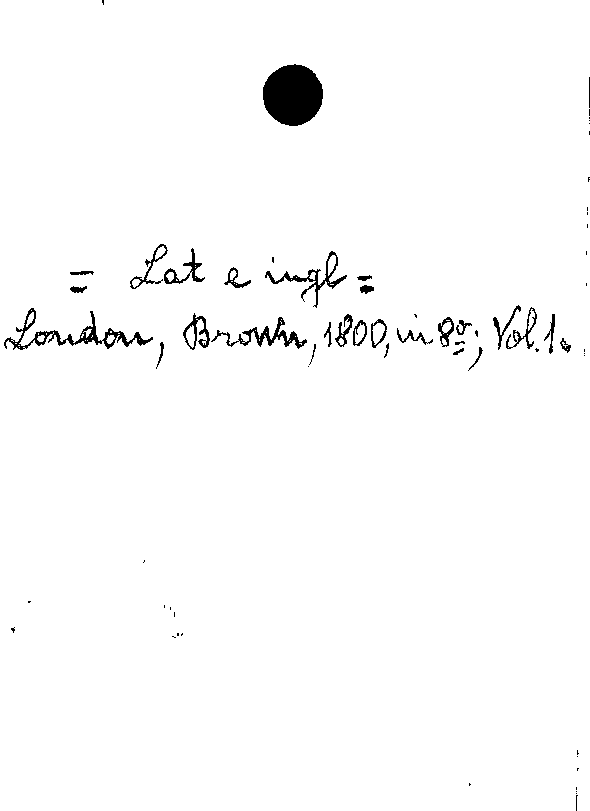 = Lat e ingl =
London, Brown, 1800, in 8º; Vol. 1.